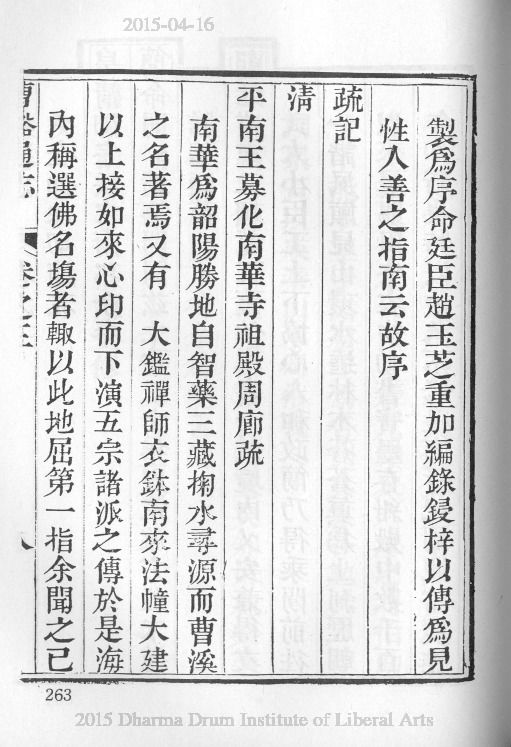 2015-04-16
製爲序命廷臣趙玉芝重加編錄鋟梓以傳爲見
性入善之指南云故序
疏記
清
平南王募化南華寺祖殿周廊疏
南華爲韶陽勝地自智藥三藏掬水尋源而曹溪
之名著焉又有 大鑑禪師衣鉢南來法幢大建
以上接如來心印而下演五宗諸派之傳於是海
內稱選佛名塲者輙以此地屈第一指余聞之已
曹谿通志 卷之三 八
263
2015 Dharma Drum Institute of Liberal Arts